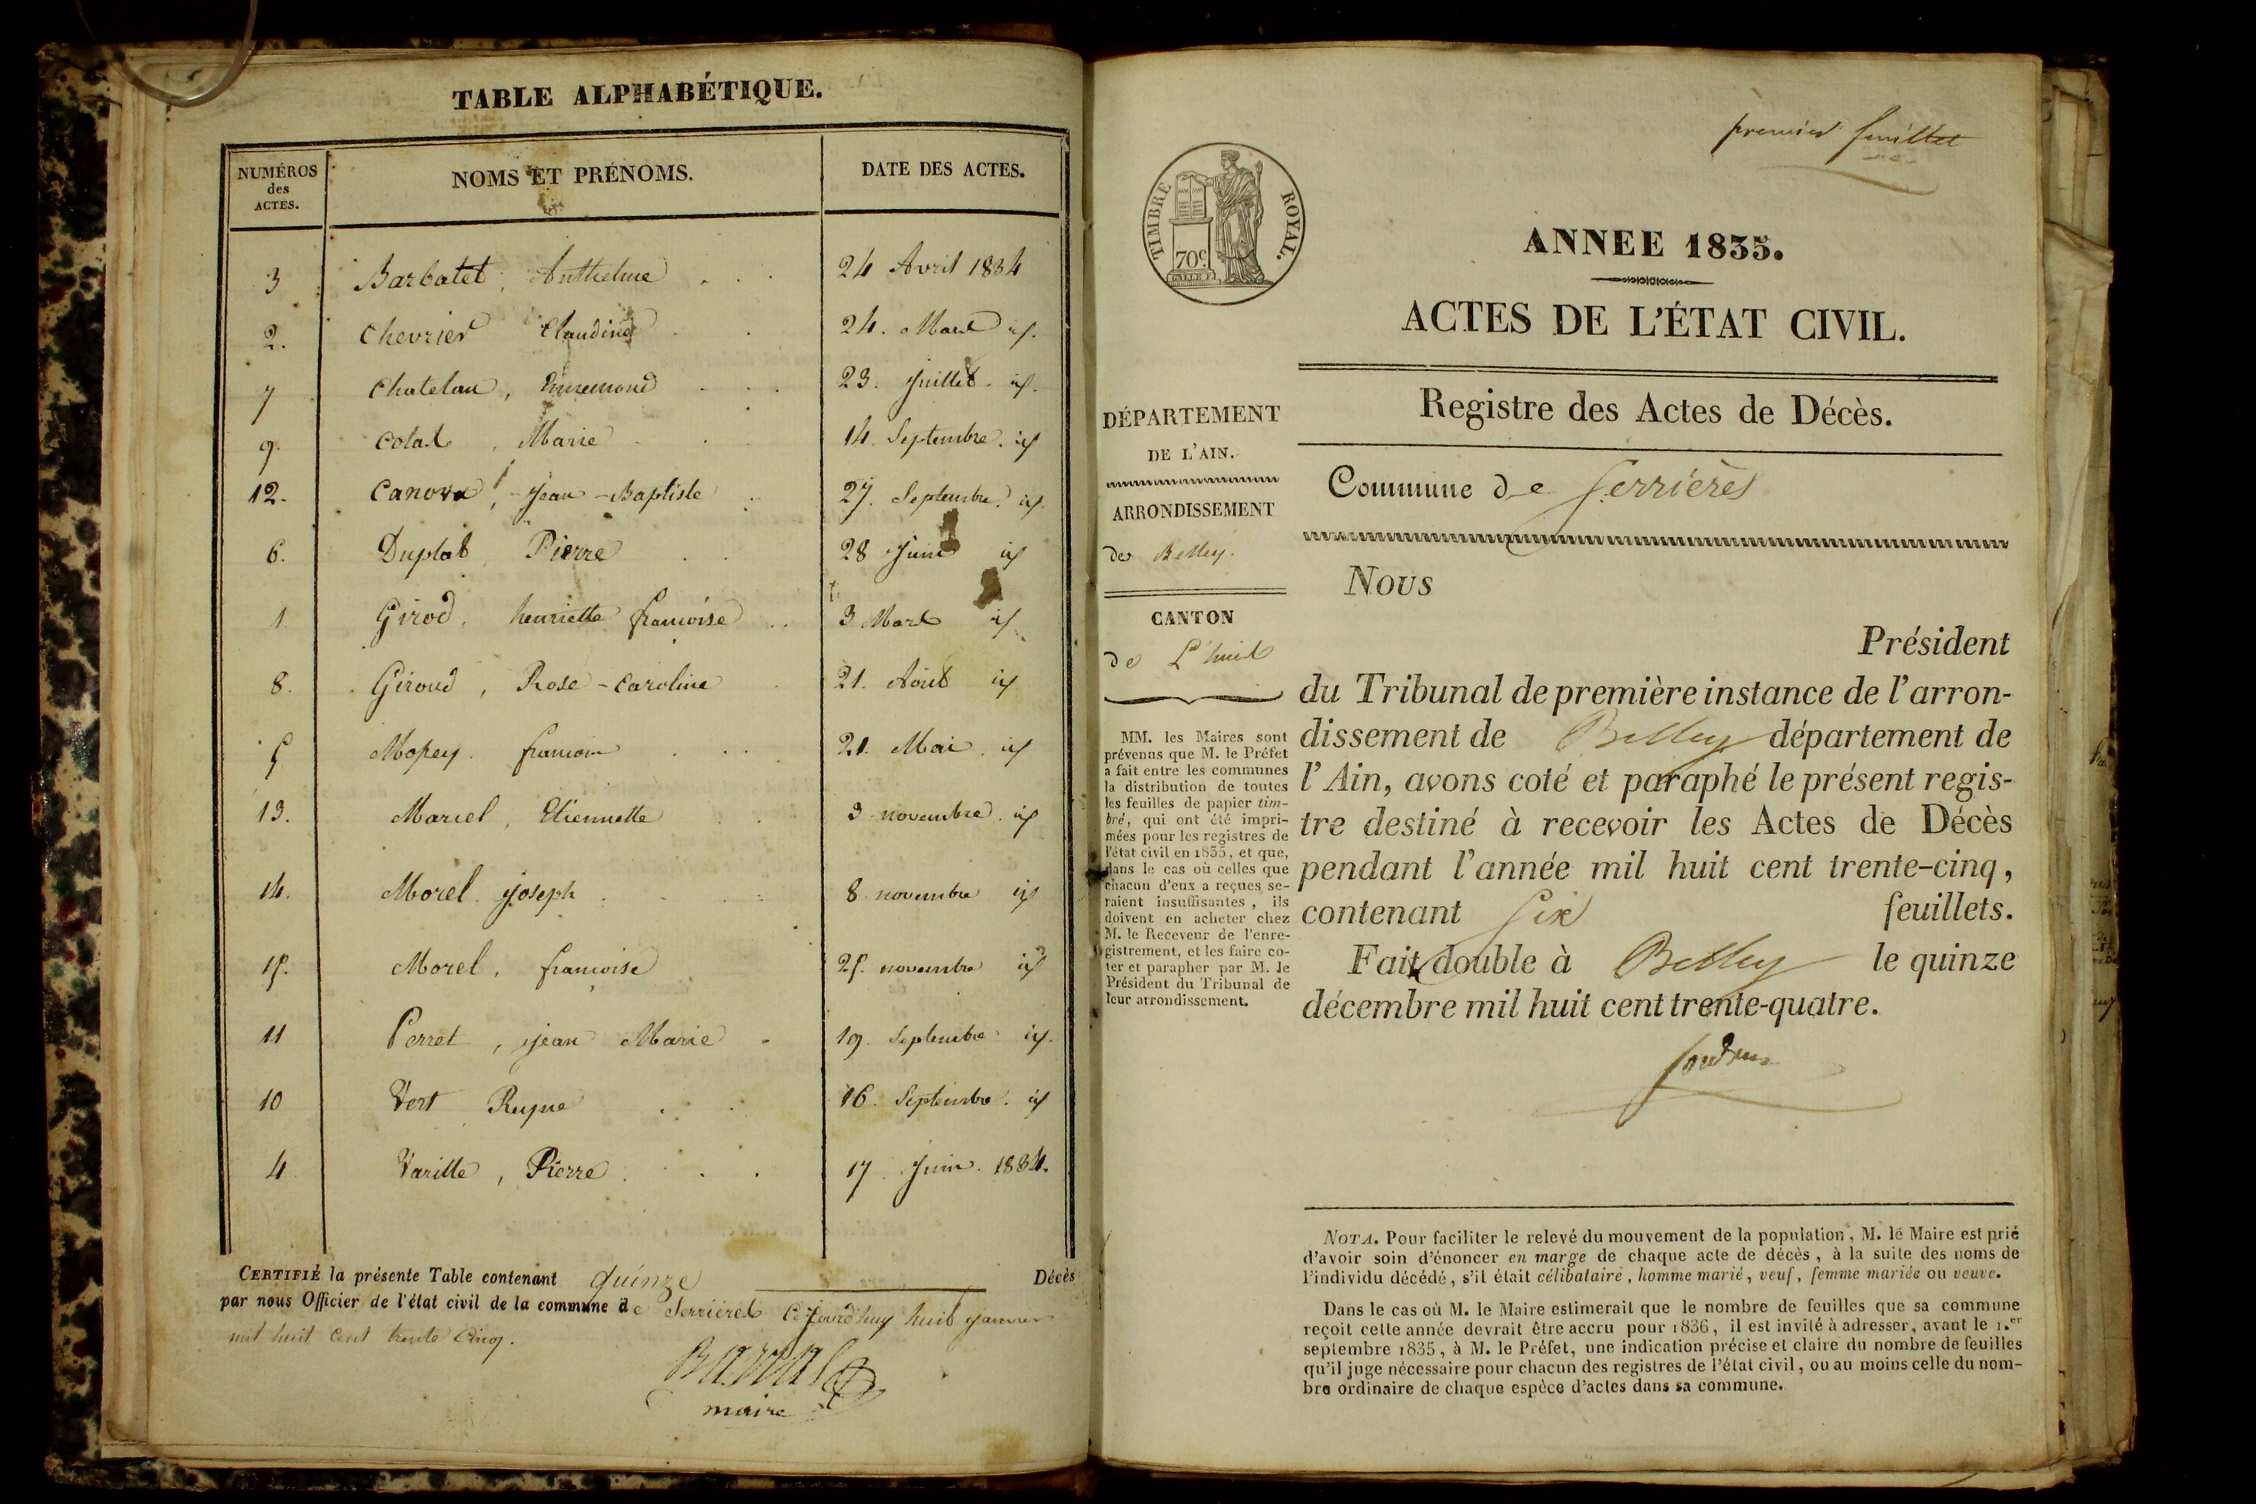 TABLE ALPHABÉTIQUE.
NUMÉROS
des
ACTES.
NOMS ET PRÉNOMS.
DATE DES ACTES.
3 Barbatet, Anthelme 24 Avril 1834
2. Chevrier Claudine 24. Mars id.
7 Chatelan, Ennemond 23. Juillet. id.
9. Colat, Marie 14. Septembre. id
12. Canova, Jean-Baptiste 27. Septembre. id.
6. Duplat Pierre 28 Juin id
1 Girod, henriette francoise 3 Mars id
8. Giroud, Rose-Caroline 21. Août id
5 francois 21. Mai. id
13. Marcel, Etiennette 3 novembre. id
14. Morel. Joseph 8 novembre id
15. Morel, francoise 25. novembre id
11 Perret, jean Marie 19. Septembre id.
10 Vert Reyne 16. Septembre. id
4 Varille, Pierre 17. Juin. 1834.
CERTIFIÉ la présente Table contenant quinze Décès
par nous Officier de l'état civil de la commune de Serrières Ce jourdhuy huit janvier
mil huit cent trente Cinq.
maire
premier feuillet
TIMBRE ROYAL.
70c.
ANNEE 1835.
ACTES DE L'ÉTAT CIVIL.
Registre des Actes de Décès.
DÉPARTEMENT
DE L'AIN.
ARRONDISSEMENT
de Belley.
CANTON
de L'huis
MM. les Maires sont
prévenus que M. le Préfet
a fait entre les communes
la distribution de toutes
les feuilles de papier tim-
bré, qui ont été impri-
mées pour les registres de
l'état civil en 1835, et que,
dans le cas où celles que
chacun d'eux a reçues se-
raient insuffisantes, ils
doivent en acheter chez
M. le Receveur de l'enre-
gistrement, et les faire co-
ter et parapher par M. le
Président du Tribunal de
leur arrondissement.
Commune de Serrières
Nous
Président
du Tribunal de première instance de l'arron-
dissement de Belley département de
l'Ain, avons coté et paraphé le présent regis-
tre destiné à recevoir les Actes de Décès
pendant l'année mil huit cent trente-cinq,
contenant Six feuillets.
Fait double à Belley le quinze
décembre mil huit cent trente-quatre.
NOTA. Pour faciliter le relevé du mouvement de la population, M. le Maire est prié
d'avoir soin d'énoncer en marge de chaque acte de décès, à la suite des noms de
l'individu décédé, s'il était célibataire, homme marié, veuf, femme mariée ou veuve.
Dans le cas où M. le Maire estimerait que le nombre de feuilles que sa commune
reçoit cette année devrait être accru pour 1836, il est invité à adresser, avant le 1.er
septembre 1835, à M. le Préfet, une indication précise et claire du nombre de feuilles
qu'il juge nécessaire pour chacun des registres de l'état civil, ou au moins celle du nom-
bre ordinaire de chaque espèce d'actes dans sa commune.